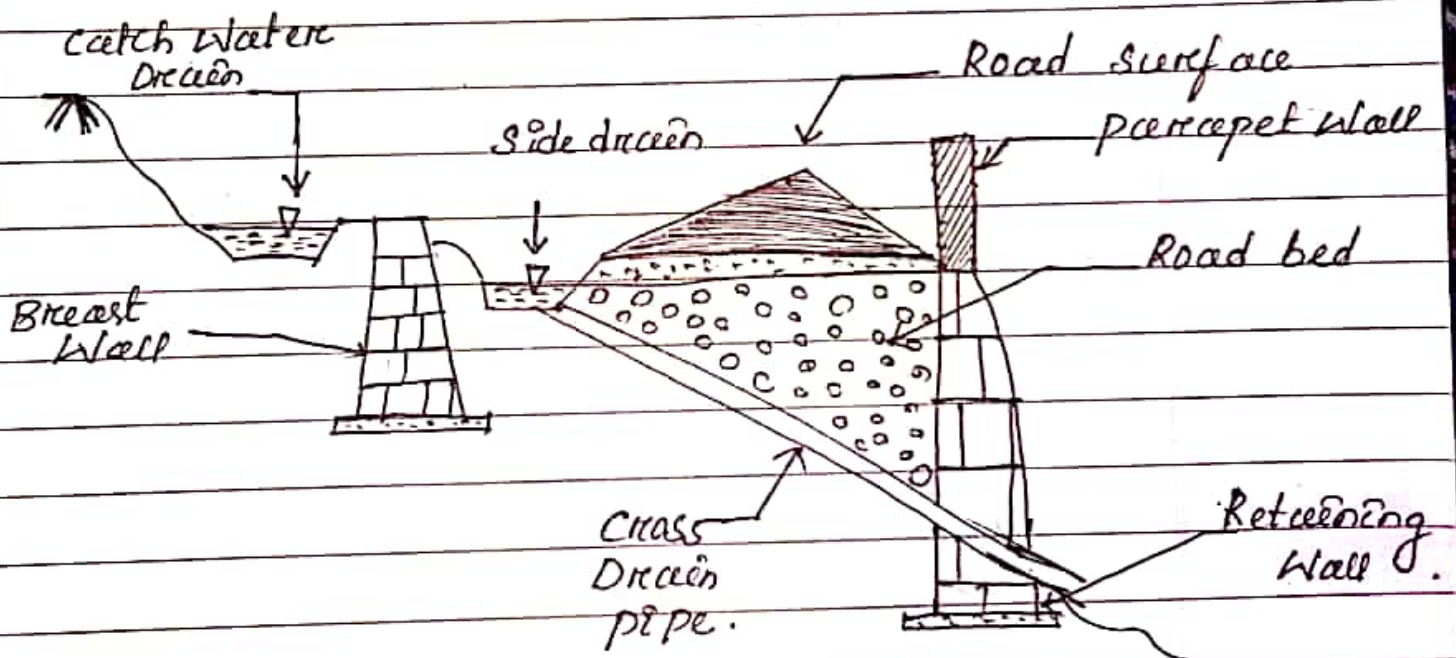 Catch Water
Drain
Road Surface
Side drain
Parapet Wall
Road bed
Breast
Wall
Cross
Drain
pipe.
Retaining
Wall.